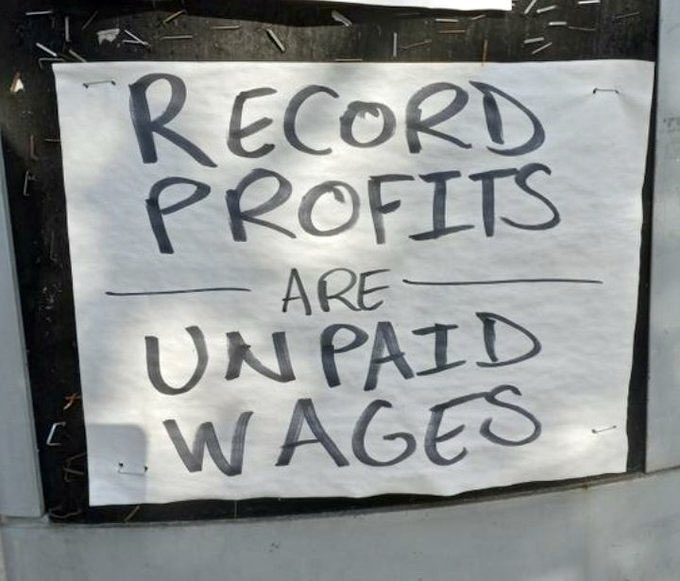 RECORD
PROFITS
ARE
UNPAID
WAGES